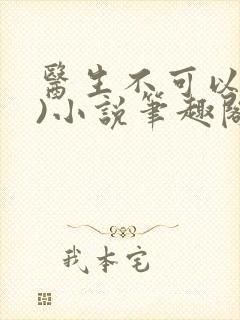 醫生不可以
)小說筆趣閣
我本宅